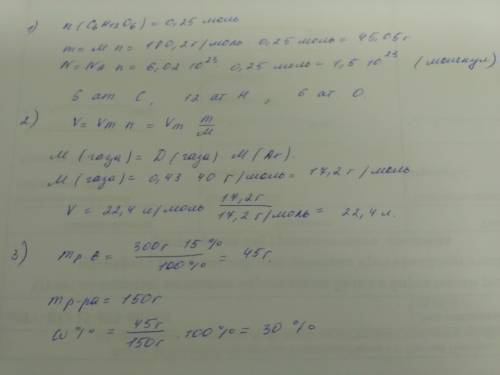 1) n (C6H12O6) = 0,25 моль
m = M n = 180,2 г/моль 0,25 моль = 45,05 г
N = NA n = 6,02 10²³ 0,25 моль = 1,5 10²³ (молекул)
6 ат C, 12 ат H, 6 ат O.
2) V = Vm n = Vm m/M
M (газа) = D (газа) M (Ar).
M (газа) = 0,43 40 г/моль = 17,2 г/моль
V = 22,4 л/моль 17,2г/17,2г/моль = 22,4 л.
3) mр.в = 300г 15%/100% = 45г.
mр-ра = 150г
ω% = 45г/150г · 100% = 30%